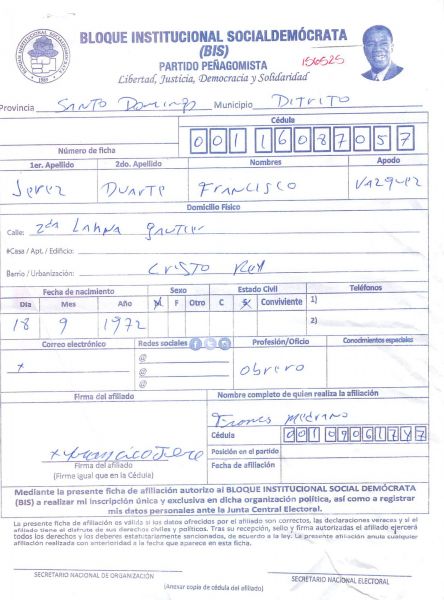 BLOQUE INSTITUCIONAL SOCIALDEMÓCRATA
(BIS)
PARTIDO PEÑAGOMISTA
156525
Libertad, Justicia, Democracia y Solidaridad
Provincia Santo Domingo Municipio Ditrito
Cédula
Número de ficha 001 1608705 7
1er. Apellido 2do. Apellido Nombres Apodo
Jerez Duarte Francisco Vazquez
Domicilio Físico
Calle: 2da
#Casa / Apt. / Edificio:
Barrio / Urbanización: Cristo Rey
Fecha de nacimiento Sexo Estado Civil Teléfonos
Día Mes Año M F Otro C S Conviviente 1)
18 9 1972 2)
Correo electrónico Redes sociales Profesión/Oficio Conocimientos especiales
x @ Obrero
@
@
Firma del afiliado Nombre completo de quien realiza la afiliación
Medrano
Cédula
Posición en el partido
Firma del afiliado Fecha de afiliación
(Firma igual que en la Cédula)
Mediante la presente ficha de afiliación autorizo al BLOQUE INSTITUCIONAL SOCIAL DEMÓCRATA
(BIS) a realizar mi inscripción única y exclusiva en dicha organización política, así como a registrar
mis datos personales ante la Junta Central Electoral.
La presente ficha de afiliación es válida si los datos ofrecidos por el afiliado son correctos, las declaraciones veraces y si el
afiliado tiene el disfrute de sus derechos civiles y políticos. Tras su recepción, sello y firma autorizadas el afiliado ejercerá
todos los derechos y los deberes estatutariamente sancionados, de acuerdo a la ley. La presente afiliación anula cualquier
afiliación realizada con anterioridad a la fecha que aparece en esta ficha.
SECRETARIO NACIONAL DE ORGANIZACIÓN SECRETARIO NACIONAL ELECTORAL
(Anexar copia de cédula del afiliado)